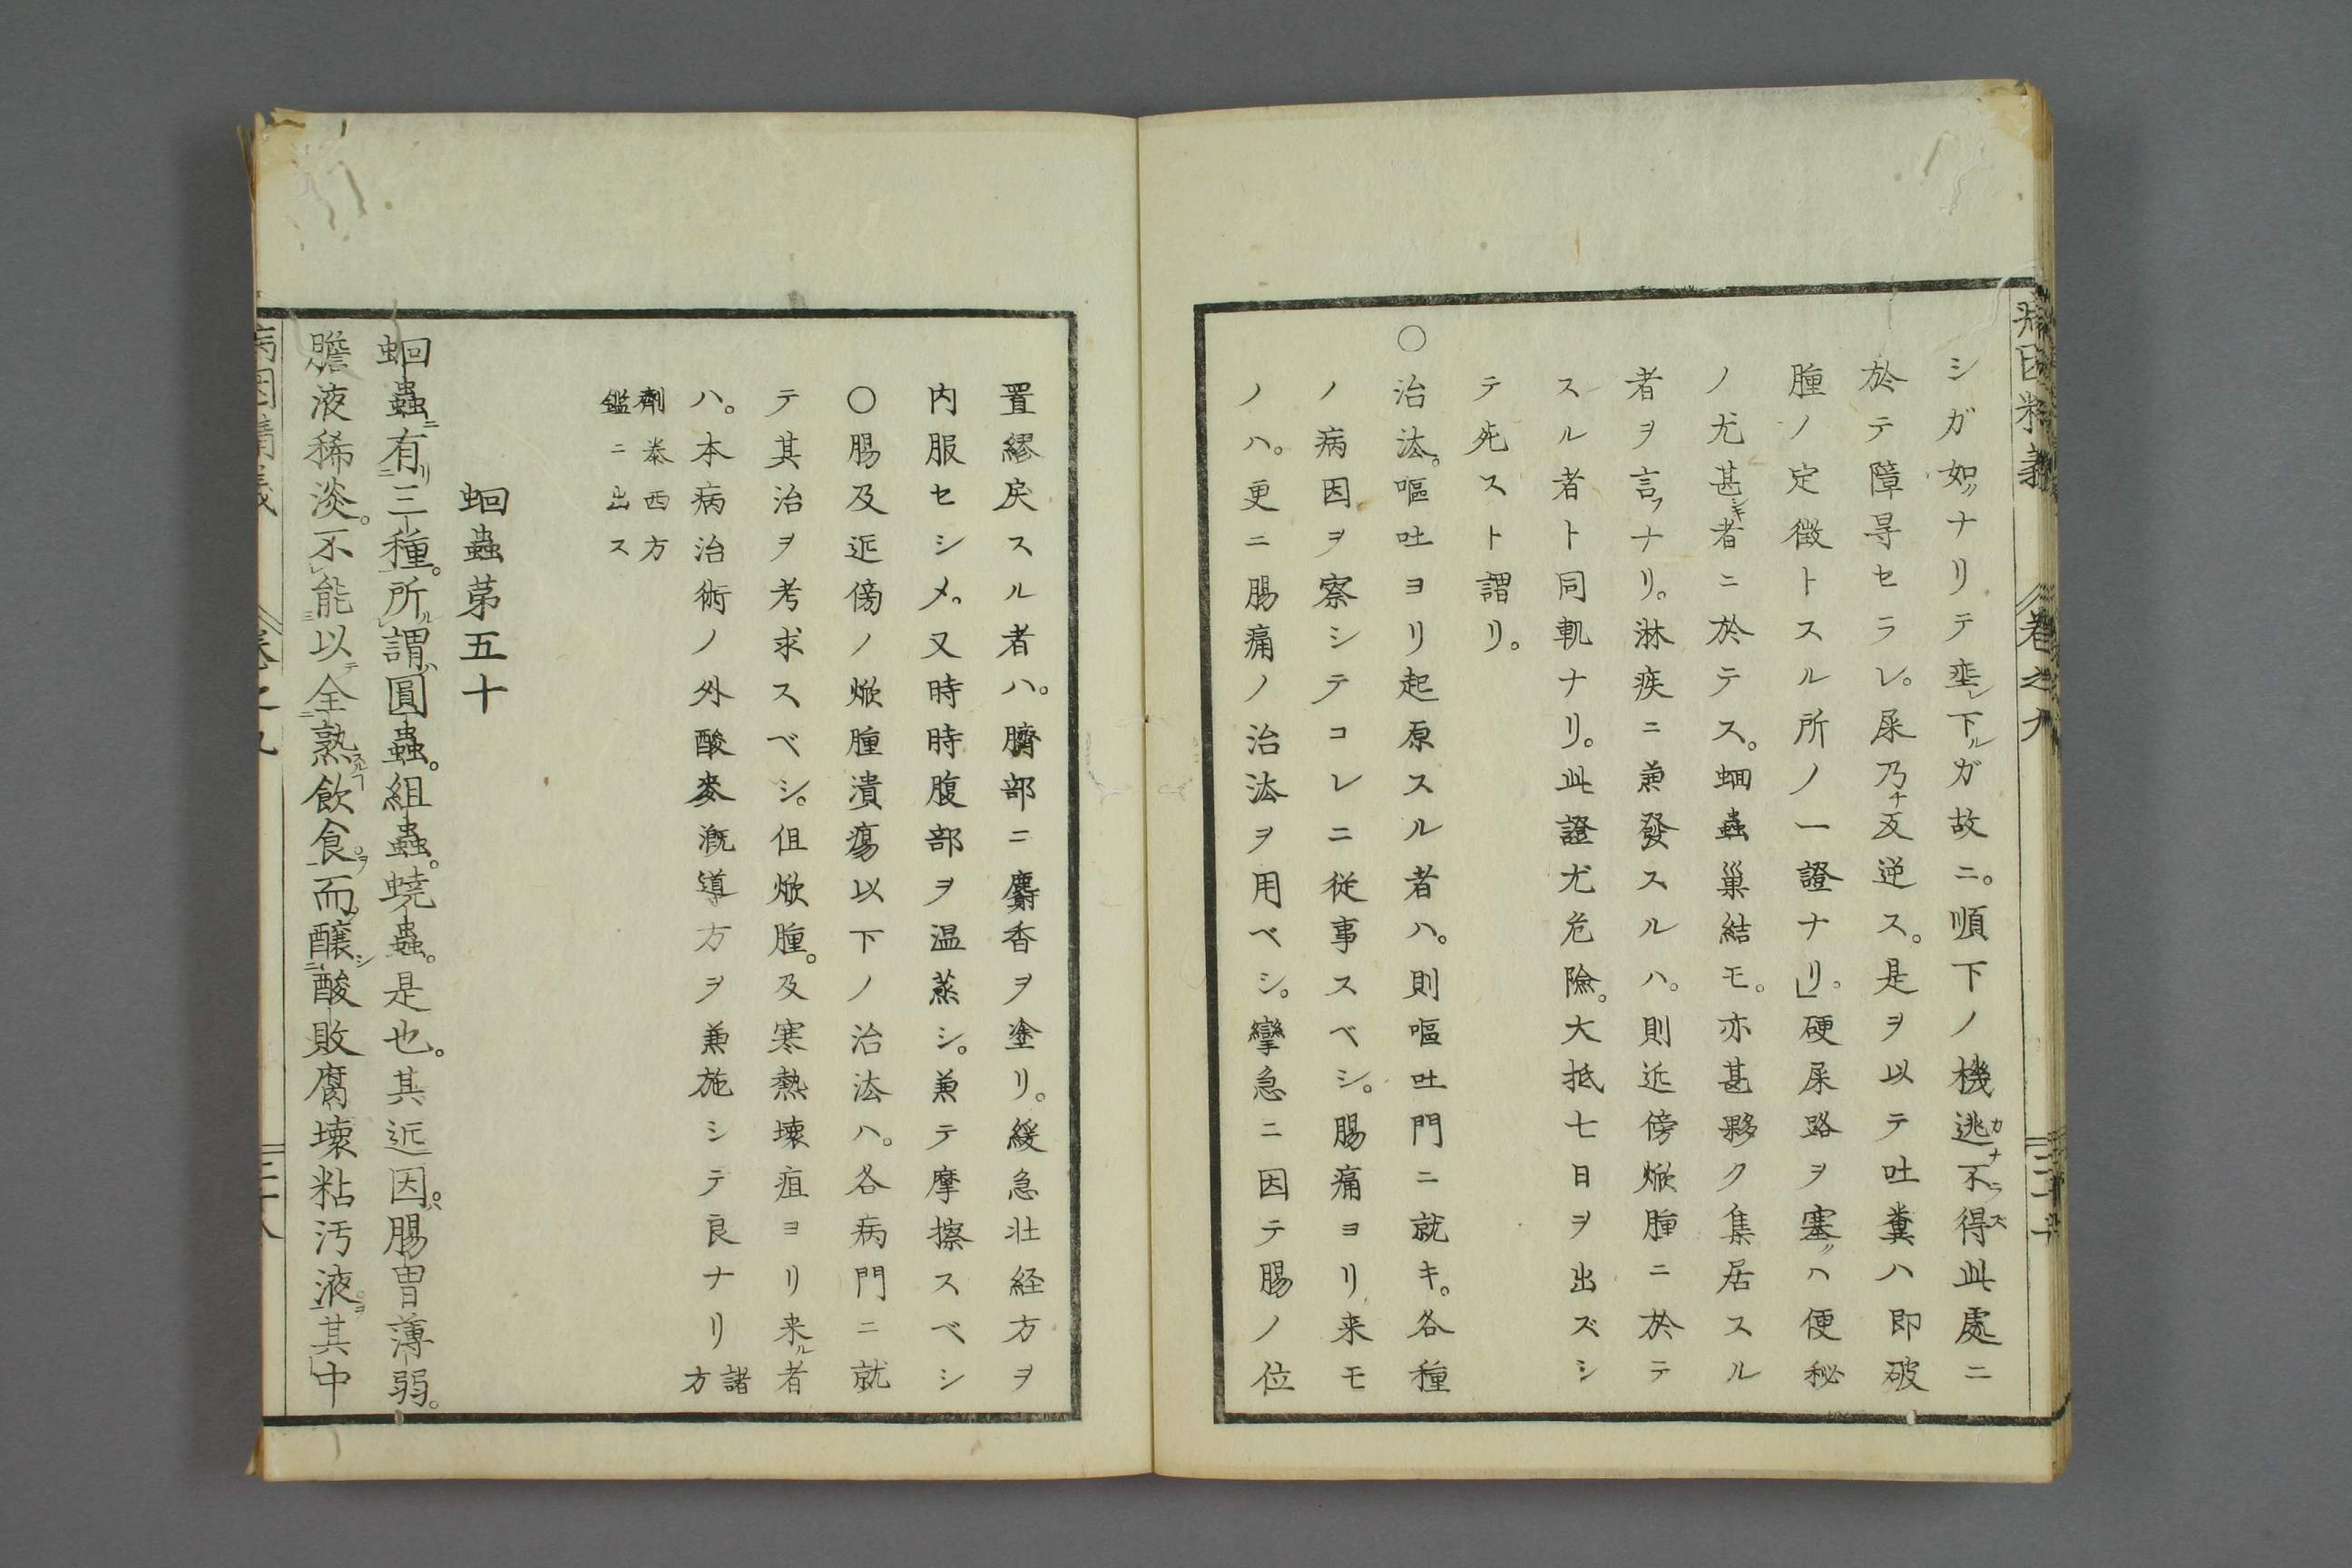 シガ如クナリテ埀レ下ルガ故ニ。順下ノ機逃不得此處ニ
カナラズ
於テ障㝵セラレ。屎乃チ反逆ス。是ヲ以テ吐糞ハ即破
腫ノ定徴トスル所ノ一證ナリ。」硬屎路ヲ塞グハ便秘
ノ尤甚シキ者ニ於テス。蛔蟲巢結モ。亦甚夥ク集居スル
者ヲ言フナリ。淋疾ニ兼發スルハ。則近傍焮腫ニ於テ
スル者ト同軌ナリ。此證尤危險。大抵七日ヲ出ズシ
テ死スト謂リ。
〇治法。嘔吐ヨリ起原スル者ハ。則嘔吐門ニ就キ。各種
ノ病因ヲ察シテコレニ從事スベシ。腸痛ヨリ来モ
ノハ。更ニ腸痛ノ治法ヲ用ベシ。攣急ニ因テ腸ノ位
置繆戻スル者ハ。臍部ニ麝香ヲ塗リ。緩急壮経方ヲ
内服セシメ。又時時腹部ヲ温蒸シ。兼テ摩擦スベシ
〇腸及近傍ノ焮腫潰瘍以下ノ治法ハ。各病門ニ就
テ其治ヲ考求スベシ。但焮腫。及寒熱壊疽ヨリ来ル者
ハ。本病治術ノ外酸麥漑導方ヲ兼施シテ良ナリ諸方
劑泰西方
鑑ニ出ス
蛔蟲苐五十
蛔蟲ニ有リ三種。所謂ル圓蟲。組蟲。蟯蟲。是也。其近因。腸胃薄弱。
膽液稀淡。不能以テ全熟スルヿ飲食ヲ。而醸シ酸敗腐壊粘汚液ヲ。其中
病因精義 卷之九